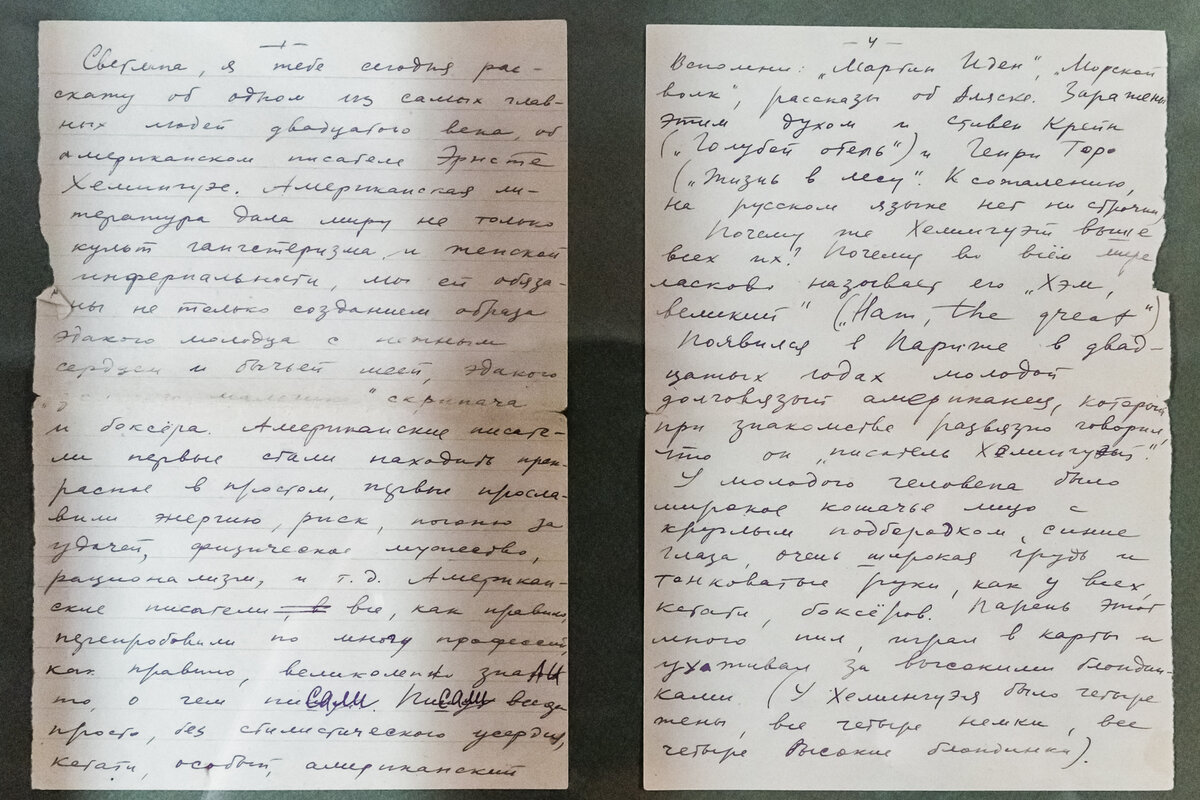 — 1 —
Светлана, я тебе сегодня рас-
скажу об одном из самых глав-
ных людей двадцатого века, об
американском писателе Эрнсте
Хемингуэе. Американская ли-
тература дала миру не только
культ гангстеризма и женской
инфернальности, мы ей обяза-
ны не только созданием образа
эдакого молодца с нежным
сердцем и бычьей шеей, эдакого
скрипача
и боксёра. Американские писате-
ли первые стали находить прек-
расное в простом, первые просла-
вили энергию, риск, погоню за
удачей, физическое мужество,
рационализм, и т.д. Американ-
ские писатели все, как правило,
перепробовали по многу профессий,
как правило, великолепно знали
то, о чем писали. Писали всегда
просто, без стилистического усердия,
кстати, особый, американский
— 4 —
Вспомни: „Мартин Иден", „Морской
волк", рассказы об Аляске. Заражены
этим духом и Стивен Крейн
(„Голубой отель") и Генри Торо
(„Жизнь в лесу". К сожалению,
на русском языке нет ни строчки
Почему же Хемингуэй выше
всех их? Почему во всём мире
ласково называет его „Хэм,
великий" („Ham, the great")
Появился в Париже в двад-
цатых годах молодой
долговязый американец, который
при знакомстве развязно говорил,
что он „писатель Хемингуэй".
У молодого человека было
широкое кошачье лицо с
круглым подбородком, синие
глаза, очень широкая грудь и
тонковатые руки, как у всех,
кстати, боксёров. Парень этот
много пил, играл в карты и
ухаживал за высокими блондин-
ками (У Хемингуэя было четыре
жены, все четыре немки, все
четыре высокие блондинки).